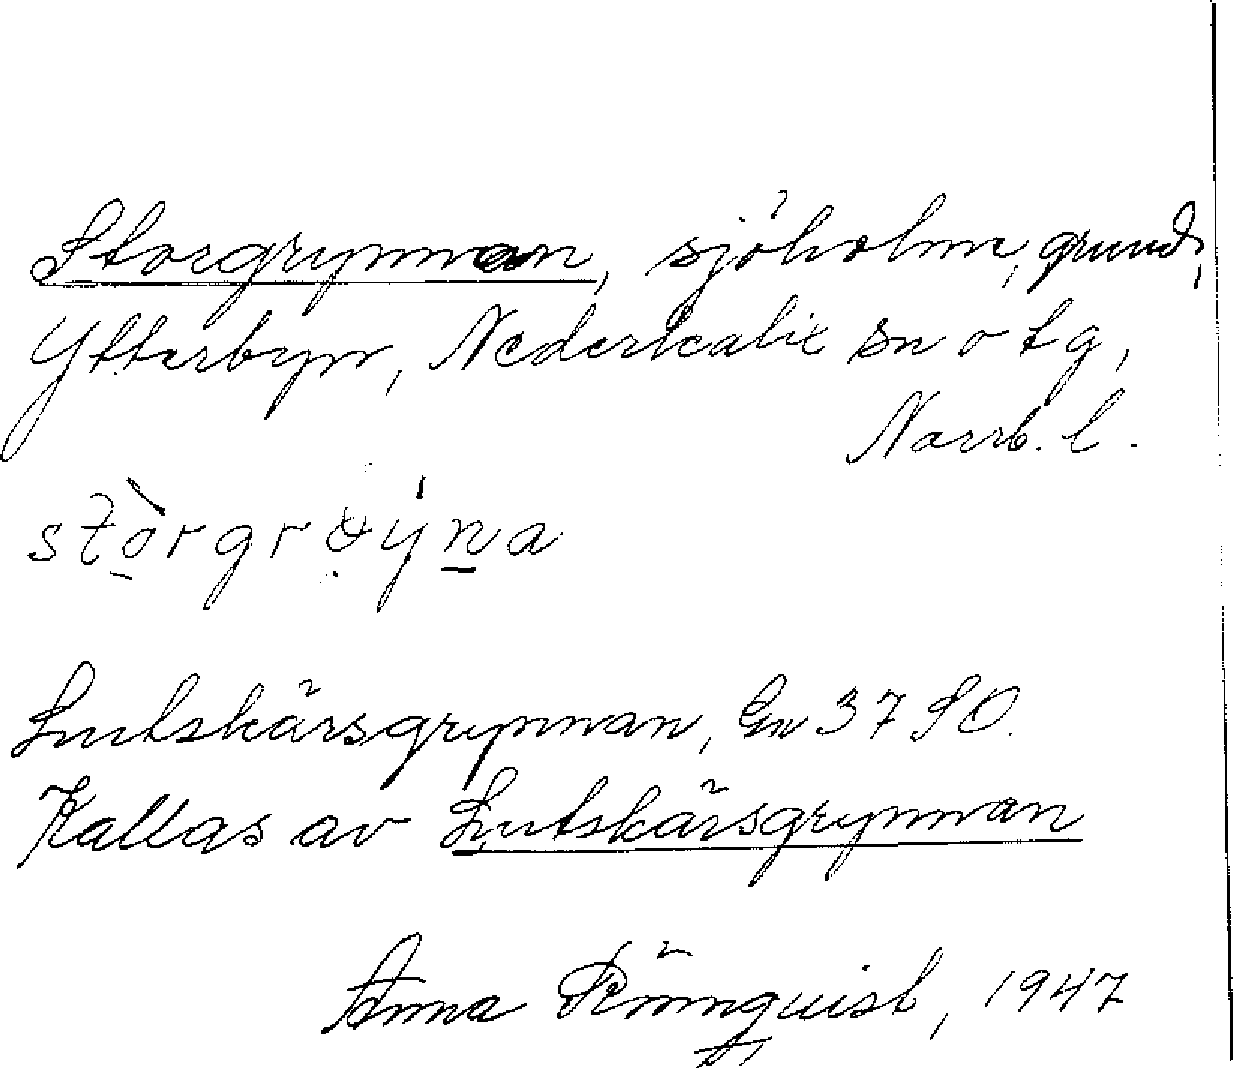 Storgrynnan, sjöholme, grund,
Ytterbyn, Nederkalix sn o tg,
Norrb. l.
stòrgrɵýna
Lutskärsgrynnan, Gn 37 SO.
Kallas av Lutskärsgrynnan
Anna Rönnquist, 1947